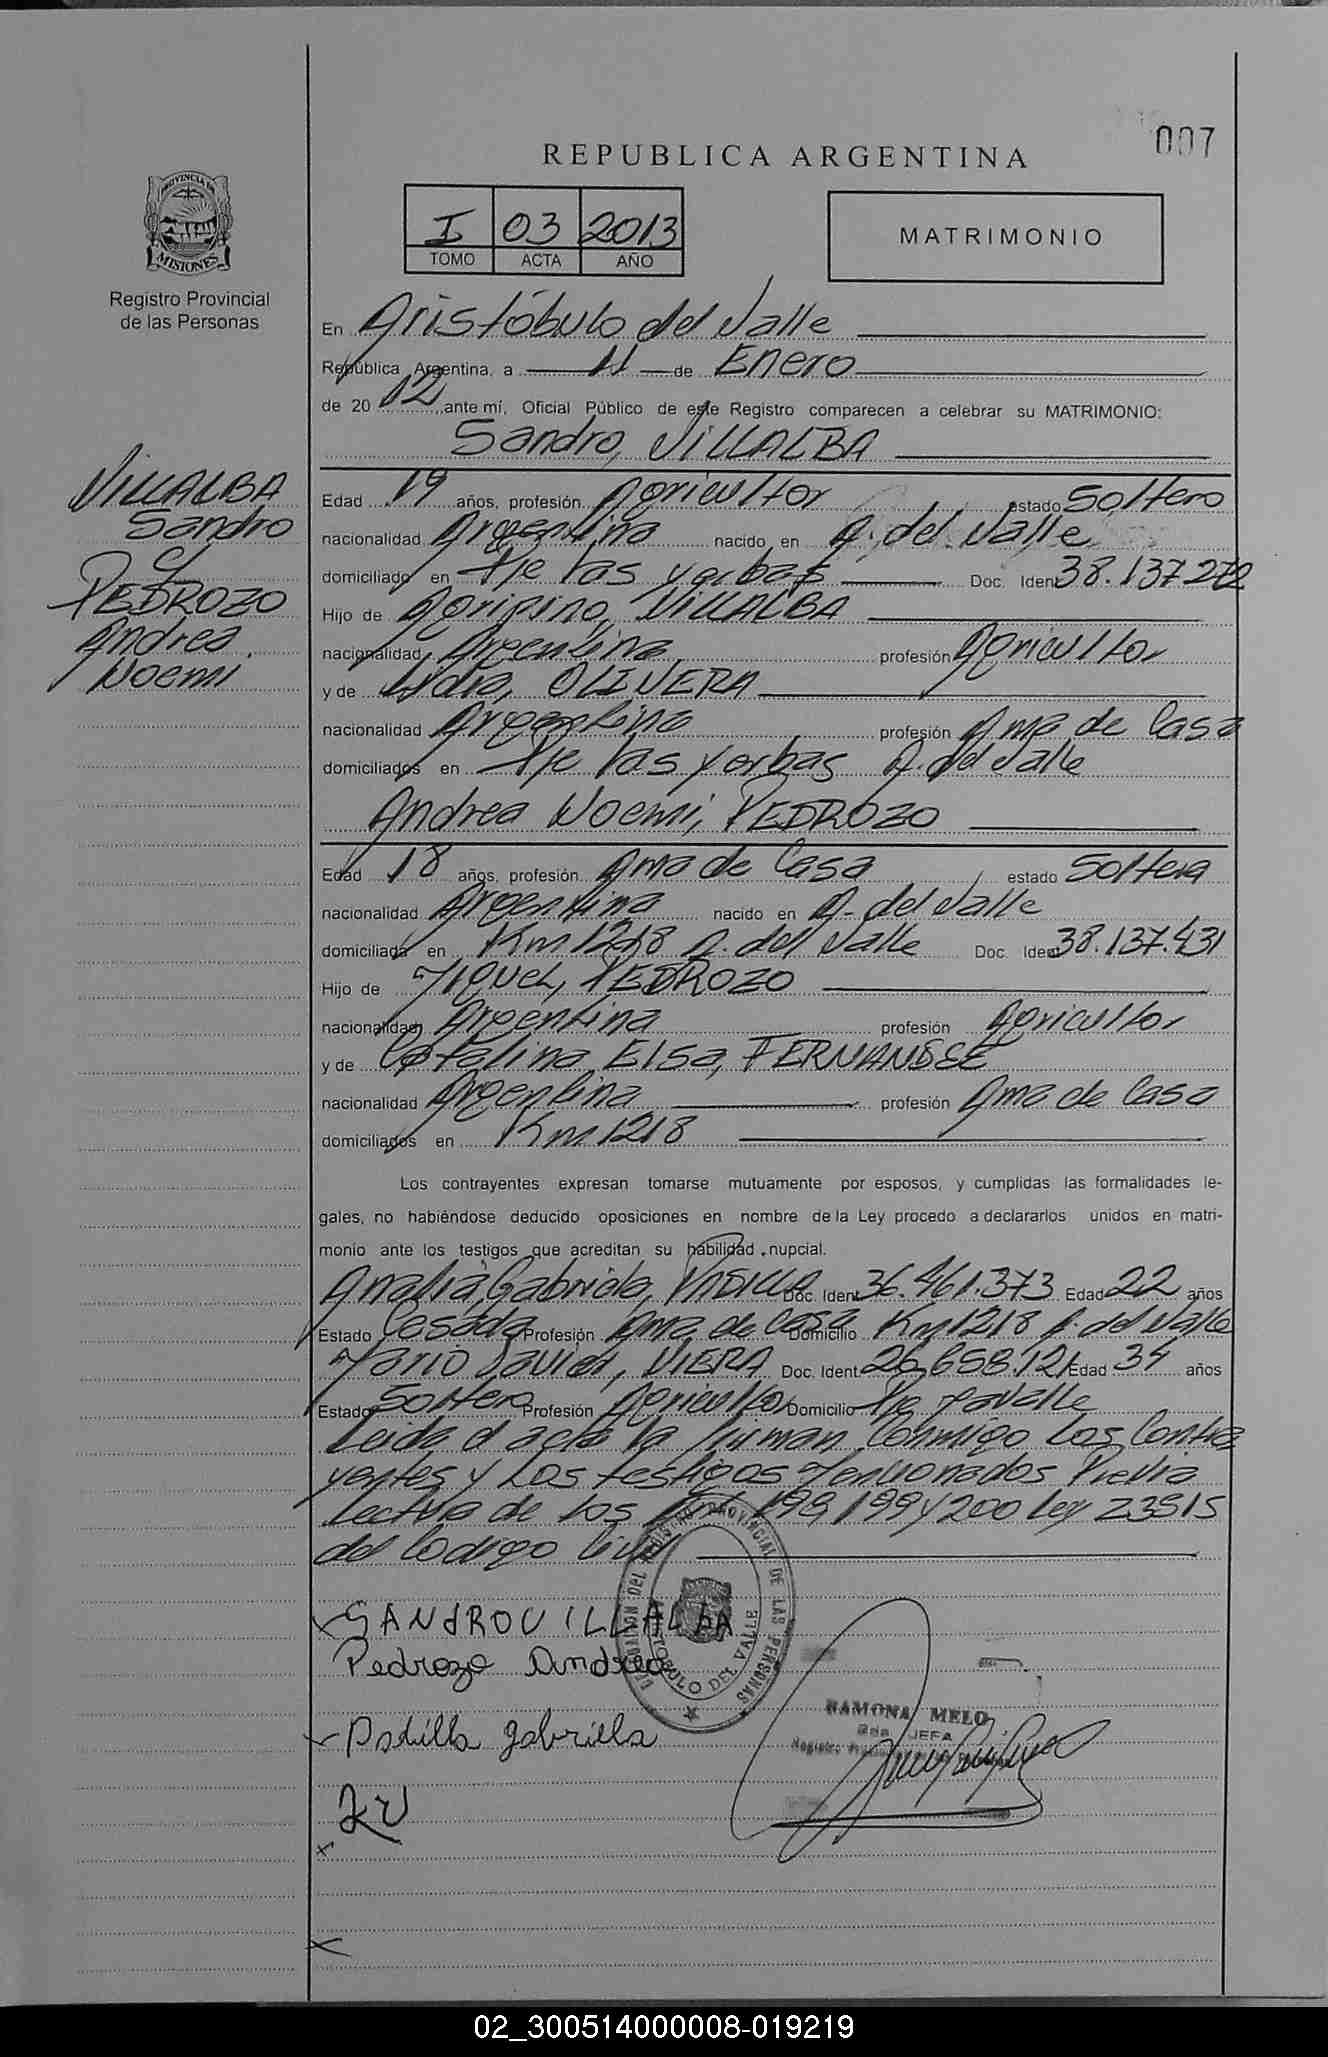 007
REPUBLICA ARGENTINA
I 03 2013
TOMO ACTA AÑO
MATRIMONIO
PROVINCIA DE
MISIONES
Registro Provincial
de las Personas
En Aristóbulo del Valle
República Argentina, a 11 de Enero
de 20 12 ante mí, Oficial Público de este Registro comparecen a celebrar su MATRIMONIO:
Sandro, VILLALBA
VILLALBA
Sandro
y
PEDROZO
Andrea
Noemi
Edad 19 años, profesión Agricultor estado Soltero
nacionalidad Argentina nacido en A. del Valle
domiciliado en Pje las yerbas Doc. Ident 38.137.272
Hijo de Agripino, VILLALBA
nacionalidad Argentina profesión Agricultor
y de Lidia, OLIVERA
nacionalidad Argentina profesión Ama de Casa
domiciliados en Pje las yerbas A. del Valle
Andrea Noemi, PEDROZO
Edad 18 años, profesión Ama de Casa estado Soltera
nacionalidad Argentina nacido en A. del Valle
domiciliada en Km 1218 A. del Valle Doc. Ident 38.137.431
Hijo de Miguel, PEDROZO
nacionalidad Argentina profesión Agricultor
y de Catalina Elsa, FERNANDEZ
nacionalidad Argentina profesión Ama de Casa
domiciliados en Km 1218
Los contrayentes expresan tomarse mutuamente por esposos, y cumplidas las formalidades le-
gales, no habiéndose deducido oposiciones en nombre de la Ley procedo a declararlos unidos en matri-
monio ante los testigos que acreditan su habilidad nupcial.
Analia Gabriela, PADILLA Doc. Ident 36.461.373 Edad 22 años
Estado Casada Profesión Ama de Casa Domicilio Km 1218 A. del Valle
Mario Javier, VIERA Doc. Ident 26.658.121 Edad 34 años
Estado Soltero Profesión Agricultor Domicilio
Leida el acta la firman Conmigo Los Contra
yentes y Los testigos Mencionados Previa
Lectura de los Art 198 199 y 200 Ley 23515
del Codigo Civil
SANdRO VILLALBA
Pedrozo Andrea
Padilla gabriella
DELEGACION DEL REGISTRO PROVINCIAL DE LAS PERSONAS
ARISTOBULO DEL VALLE
RAMONA MELO
JEFA
02_300514000008-019219